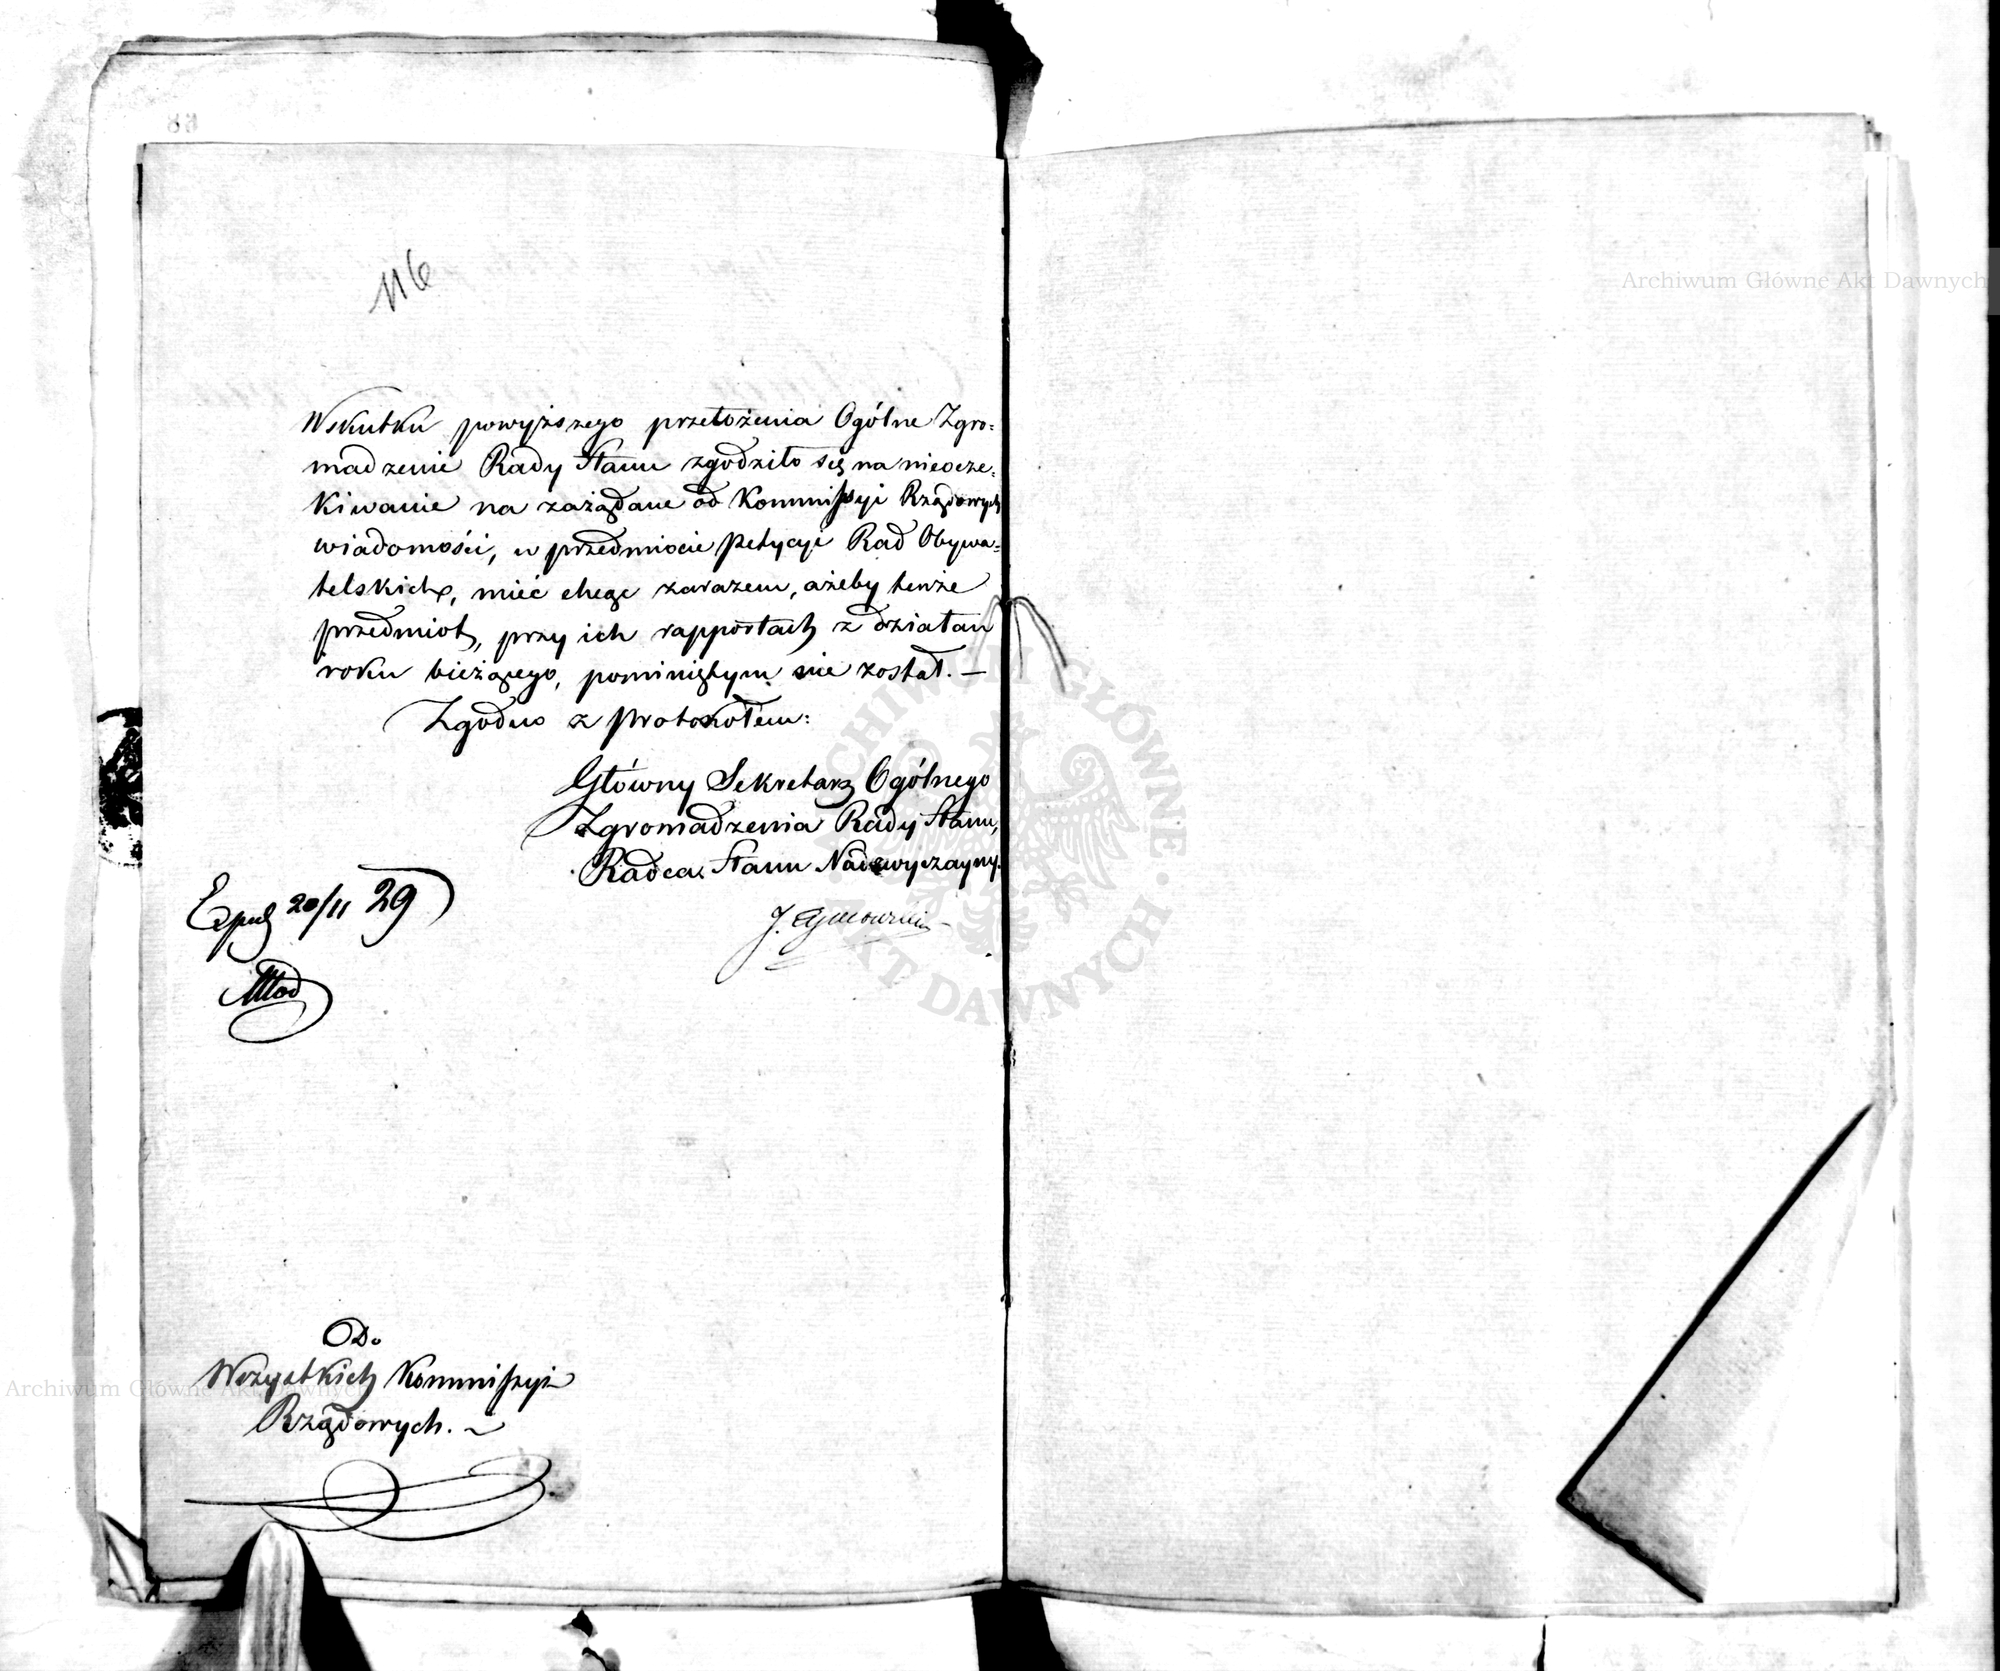 83
116
Wskutku powyższego przełożenia Ogólne Zgro=
madzenie Rady Stanu zgodziło się na nieocze=
kiwanie na zażądane od Kommissyi Rządowych
wiadomości, w przedmiocie petycyi Rad Obywa=
telskich, mieć chcąc zarazem, ażeby tenże
przedmiot, przy ich rapportach z działań
roku bieżącego, pominiętym nie został. —
Zgodno z protokołem:
Główny Sekretarz Ogólnego
Zgromadzenia Rady Stanu,
Radca Stanu Nadzwyczayny.
20/11 29
J.
Do
Wszystkich Kommissyi
Rządowych. —
Archiwum Główne Akt Dawnych
Archiwum Główne Akt Dawnych
ARCHIWUM GŁÓWNE AKT DAWNYCH